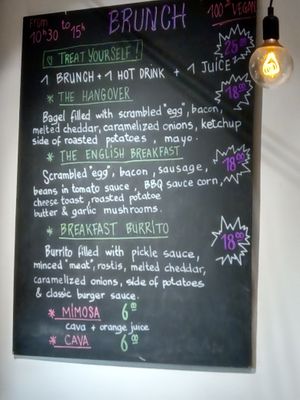 From 10h30 to 15h
BRUNCH
100% VEGAN
TREAT YOURSELF!
1 BRUNCH + 1 HOT DRINK + 1 JUICE
* THE HANGOVER
18.00
Bagel filled with scrambled "egg", bacon,
melted cheddar, caramelized onions, ketchup
side of roasted potatoes, mayo.
* THE ENGLISH BREAKFAST
18.00
Scrambled "egg", bacon, sausage,
beans in tomato sauce, BBQ sauce corn,
cheese toast, roasted potatoe
butter & garlic mushrooms.
* BREAKFAST BURRITO
18.00
Burrito filled with pickle sauce,
minced "meat", rostis, melted cheddar,
caramelized onions, side of potatoes
& classic burger sauce.
* MIMOSA
cava + orange juice
* CAVA